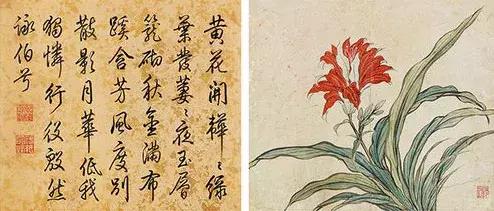 黄花開韡〻緑
葉發萋〻夜玉層
籠砌秋金滿布
蹊含芳風度別
散影月華低我
獨憐行役殷然
詠伯兮